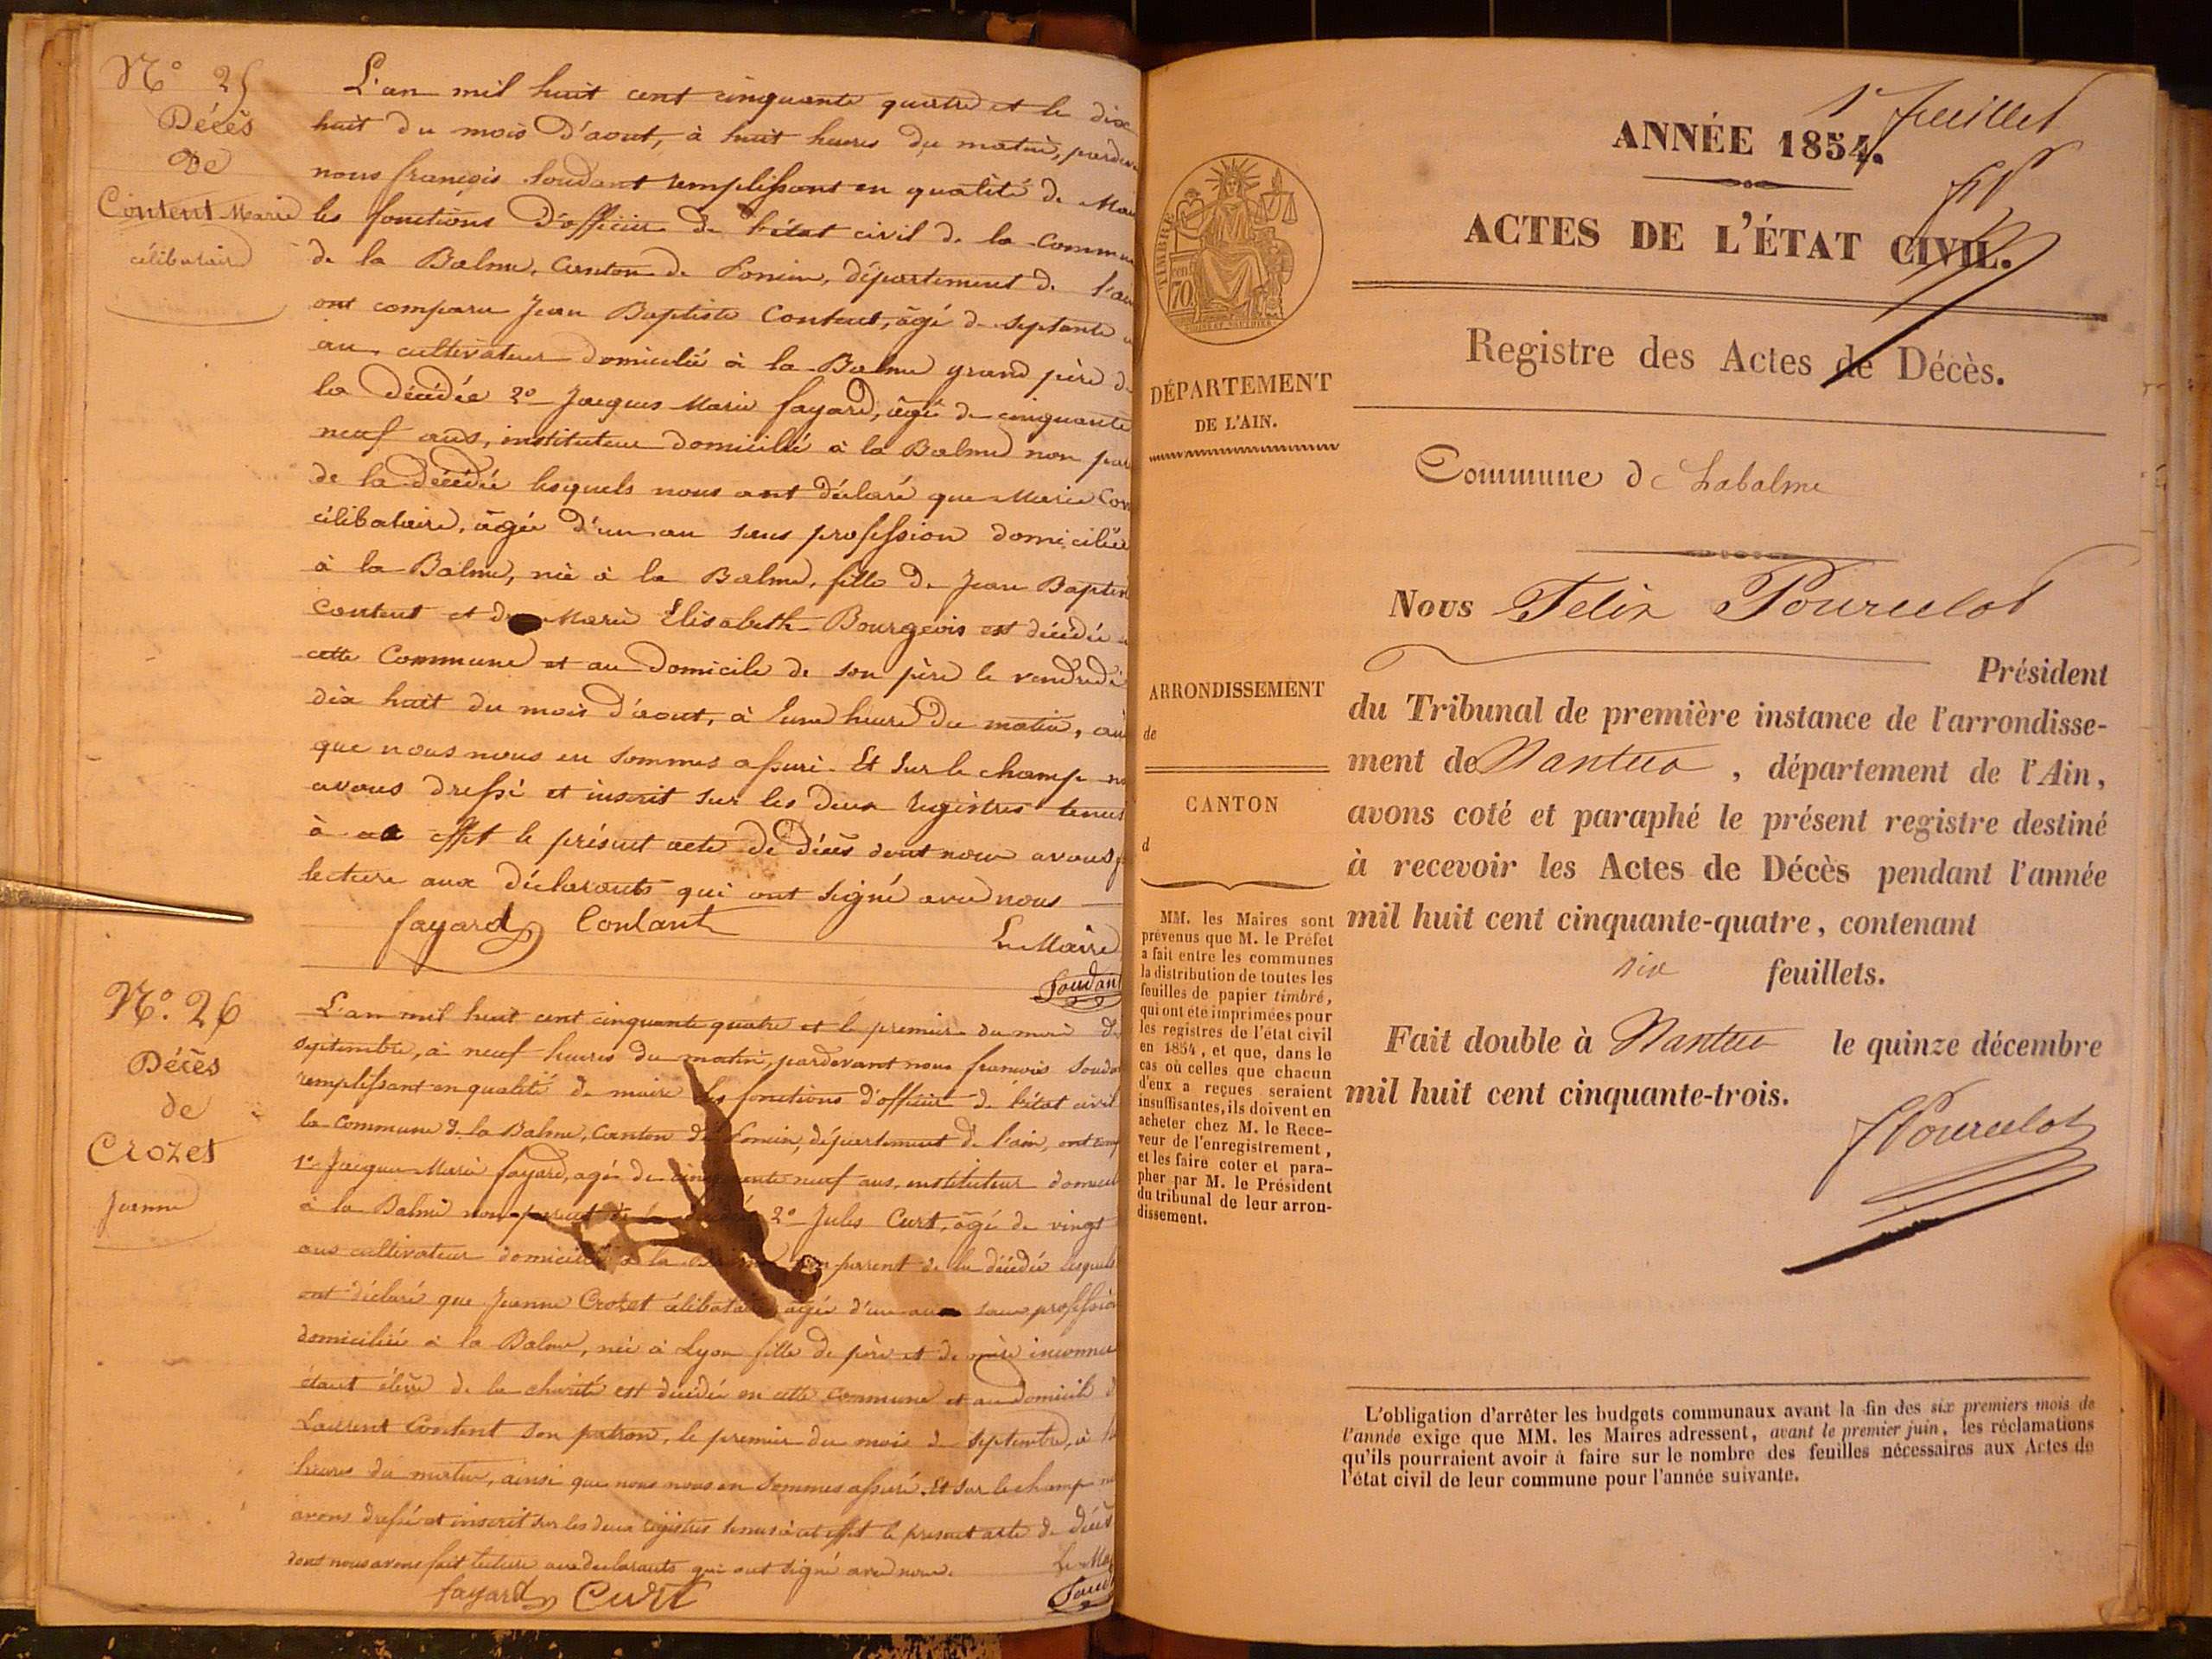 N° 25
Décès
De
Content Marie
célibataire
L'an mil huit cent cinquante quatre et le dix
huit du mois d'aout, à huit heures du matin, pardev
nous françois Soudant remplissant en qualité de Mai
les fonctions d'officier de l'état civil de la Commun
de la Balme, Canton de Poncin, département de l'ai
ont comparu Jean Baptiste Content, âgé de septante
an, cultivateur domicilié à la Balme grand père de
la décédée 2° Jacques Marie fayard, âgé de cinquante
neuf ans, instituteur domicilié à la Balme non par
de la décédée lesquels nous ont déclaré que Marie Con
célibataire, âgée d'un an sans profession domiciliée
à la Balme, née à la Balme, fille de Jean Baptis
Content et de Marie Elisabeth Bourgeois est décédée
cette Commune et au domicile de son père le vendredi
dix huit du mois d'aout, à une heure du matin, ain
que nous nous en sommes assuré. Et sur le champ no
avons dressé et inscrit sur les deux registres tenus
à effet le présent acte de décès dont nous avons f
lecture aux déclarants qui ont signé avec nous
fayard Contant
Le Maire
Soudant
N°. 26
Décès
de
Crozet
Jeanne
L'an mil huit cent cinquante quatre et le premier du mois de
septembre, à neuf heures du matin, pardevant nous françois Soudan
remplissant en qualité de maire les fonctions d'officier de l'état civil
la Commune de la Balme, Canton de Poncin, département de l'ain, ont comp
1° Jacques Marie fayard, agé de cinquante neuf ans, instituteur domicil
à la Balme non parent de la 2° Jules Curt, âgé de vingt
ans cultivateur domicilié à la Balme non parent de la décédée lesquels
ont déclaré que Jeanne Crozet célibataire âgée d'un an sans profession
domiciliée à la Balme, née à Lyon fille de père et de mère inconnu
étant élève de la charité est décédée en cette commune et au domicile d
Laurent Content son patron, le premier du mois de septembre, à
heures du matin, ainsi que nous nous en sommes assuré. Et sur le champ no
avons dressé et inscrit sur les deux registres tenus à cet effet le présent acte de décès
dont nous avons fait lecture aux déclarants qui ont signé avec nous.
Le Mai
fayard Curt
Soud
1er feuillet
ANNÉE 1854.
ACTES DE L'ÉTAT CIVIL.
Registre des Actes de Décès.
Commune de Labalme
TIMBRE
70
DÉPARTEMENT
DE L'AIN.
ARRONDISSEMENT
de
CANTON
d
MM. les Maires sont
prévenus que M. le Préfet
a fait entre les communes
la distribution de toutes les
feuilles de papier timbré,
qui ont été imprimées pour
les registres de l'état civil
en 1854, et que, dans le
cas où celles que chacun
d'eux a reçues seraient
insuffisantes, ils doivent en
acheter chez M. le Rece-
veur de l'enregistrement,
et les faire coter et para-
pher par M. le Président
du tribunal de leur arron-
dissement.
Nous Felix Pourcelot
Président
du Tribunal de première instance de l'arrondisse-
ment de Nantua, département de l'Ain,
avons coté et paraphé le présent registre destiné
à recevoir les Actes de Décès pendant l'année
mil huit cent cinquante-quatre, contenant
six feuillets.
Fait double à Nantua le quinze décembre
mil huit cent cinquante-trois.
FPourcelot
L'obligation d'arrêter les budgets communaux avant la fin des six premiers mois de
l'année exige que MM. les Maires adressent, avant le premier juin, les réclamations
qu'ils pourraient avoir à faire sur le nombre des feuilles nécessaires aux Actes de
l'état civil de leur commune pour l'année suivante.